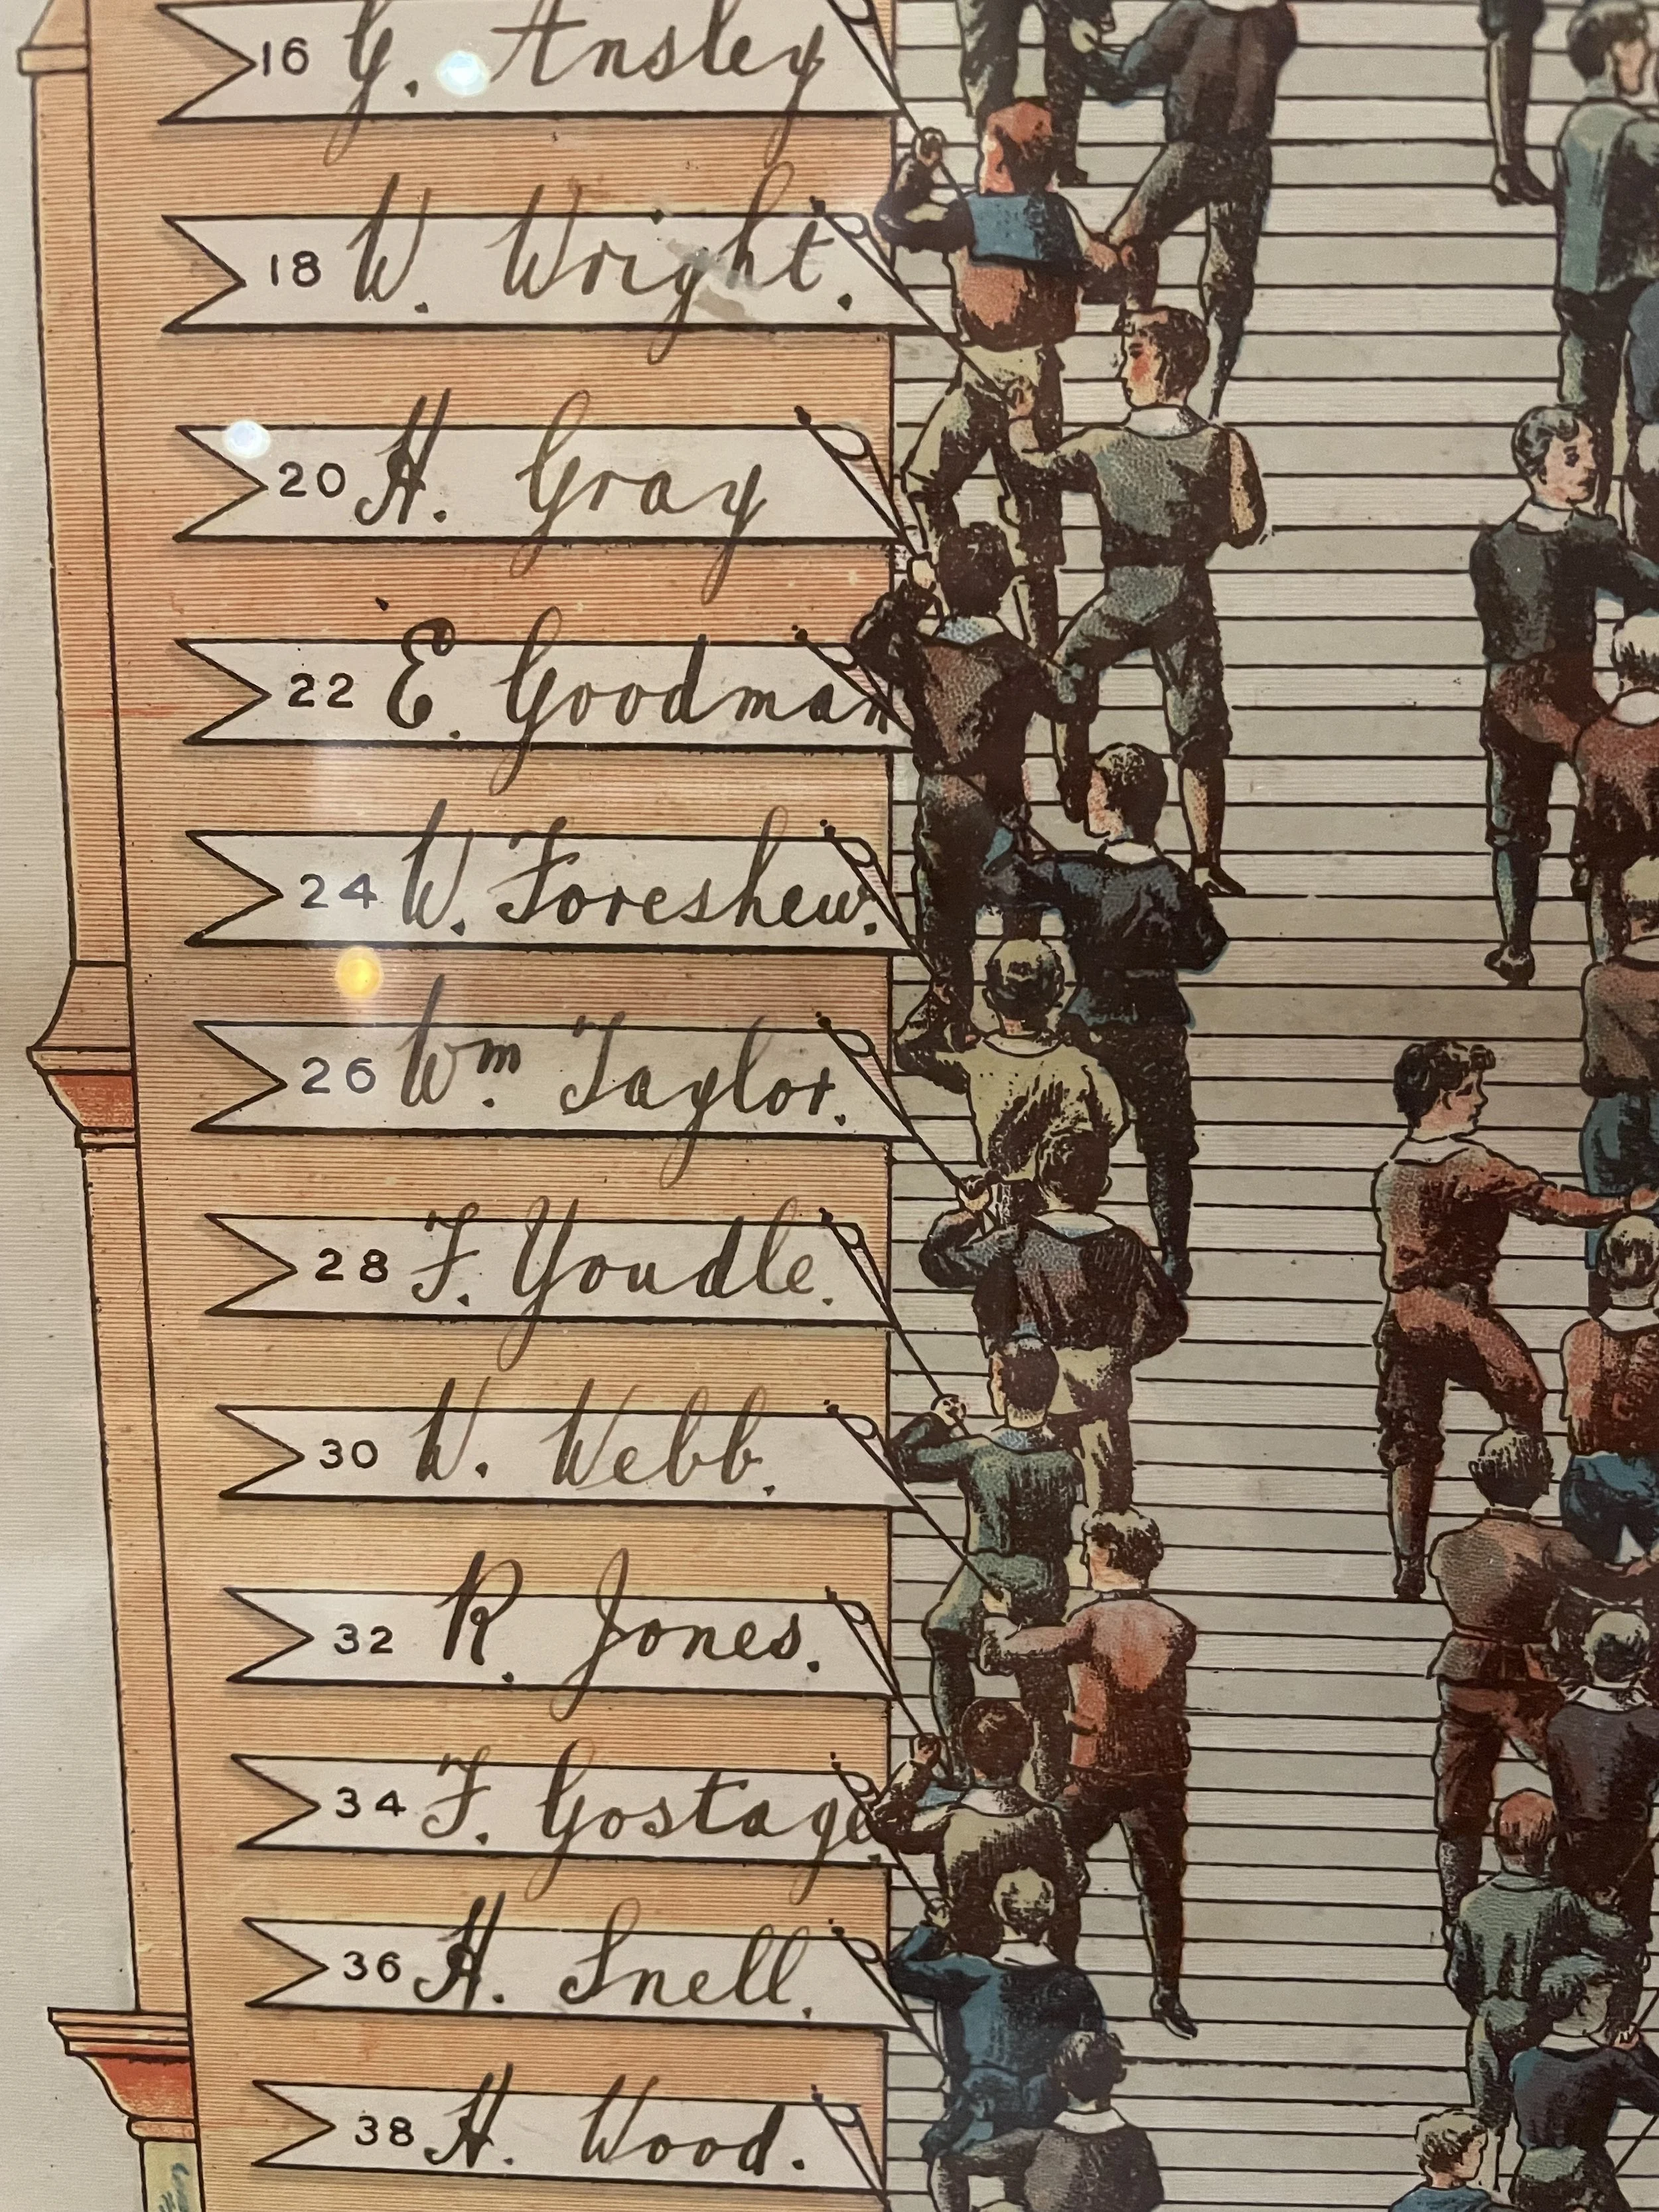 16 G. Ansley
18 W. Wright.
20 H. Gray
22 E. Goodman
24 W. Foreshew.
26 Wm. Taylor.
28 F. Youdle.
30 W. Webb.
32 R. Jones.
34 F. Gostage.
36 H. Snell.
38 H. Wood.